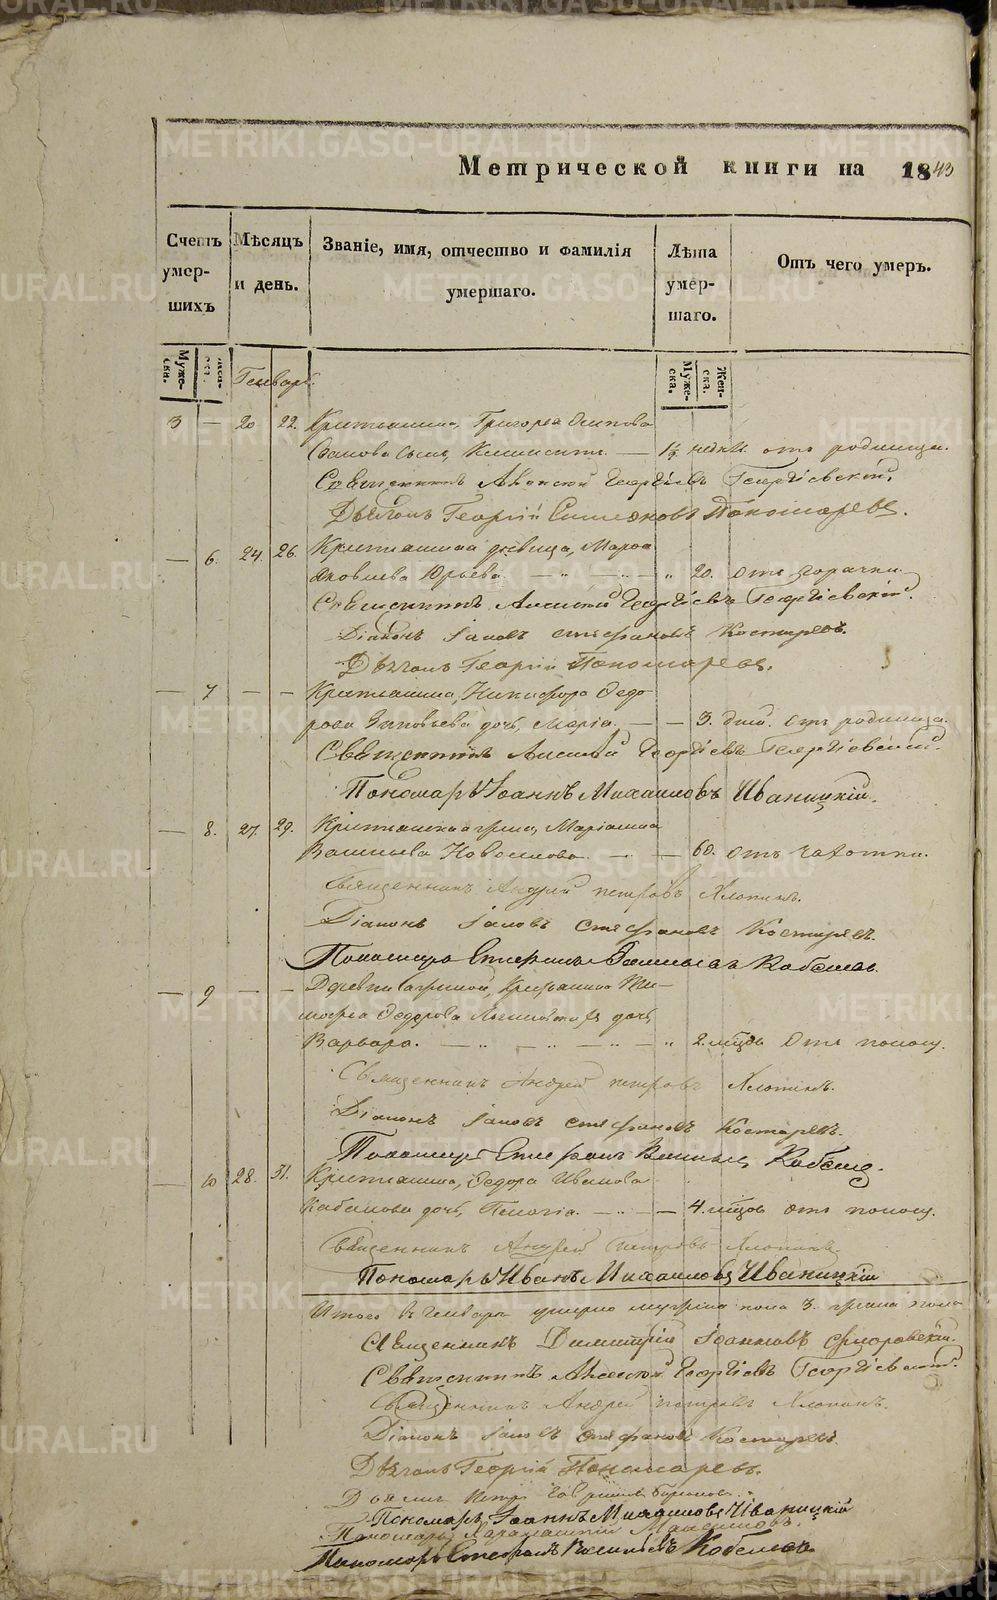 Метрической книги на 1843
Счетъ умершихъ
Мѣсяцъ и день.
Званіе, имя, отчество и фамилія умершаго.
Лѣта умершаго.
Отъ чего умеръ.
Муже-ска.
Муже-ска.
Жен-ска.
Генварь
3 — 20 22. Григорья Осипова
сынъ, — отъ родимца.
Священникъ Алексій Георгіевъ Георгіевскій.
Дьячокъ Георгій Симеоновъ Пономаревъ.
— 6. 24. 26. Крестьянская дѣвица,
Яковлева Юрьева — „ — „ 20. отъ горячки
Священникъ Алексій Георгіевъ Георгіевскій.
Діаконъ Іаковъ Стефановъ Костаревъ.
Дьячокъ Георгій Пономаревъ.
— 7 — — Крестьянина, Никифора Федо
рова дочь, Марія. — — 3. дней. отъ родимца.
Священникъ Алексій Георгіевъ Георгіевскій.
Пономарь Іоаннъ Михаиловъ Иваницкій.
— 8. 27. 29. Крестьянская жена, Маріамна
— — 60. отъ чахотки.
Священникъ Андрей Петровъ Хлопинъ.
Діаконъ Іаковъ Стефановъ Костаревъ.
Пономарь Стефанъ Васильевъ Кобелевъ.
— 9 — — Деревни Крестьянина Ти
мофея Федорова дочь,
Варвара. — „ — „ — „ — „ 2. мѣсяцовъ отъ поносу.
Священникъ Андрей Петровъ Хлопинъ.
Діаконъ Іаковъ Стефановъ Костаревъ.
Пономарь Стефанъ Васильевъ Кобелевъ.
— 10 28. 31. Крестьянина, Федора Иванова
Кабакова дочь, Пелагія. — „ — 4. мѣсяцовъ отъ поносу.
Священникъ Андрей Петровъ Хлопинъ
Пономарь Иванъ Михаиловъ Иваницкій
Итого въ Генварѣ умерло мужеска пола 3. женска пола
Священникъ Димитрій Іоанновъ Флоровскій.
Священникъ Алексій Георгіевъ Георгіевскій.
Священникъ Андрей Петровъ Хлопинъ.
Діаконъ Іаковъ Стефановъ Костаревъ.
Дьячокъ Георгій Пономаревъ.
Пономарь Іоаннъ Михаиловъ Иваницкій
Пономарь
Пономарь Стефанъ Васильевъ Кобелевъ
METRIKI.GASO-URAL.RU